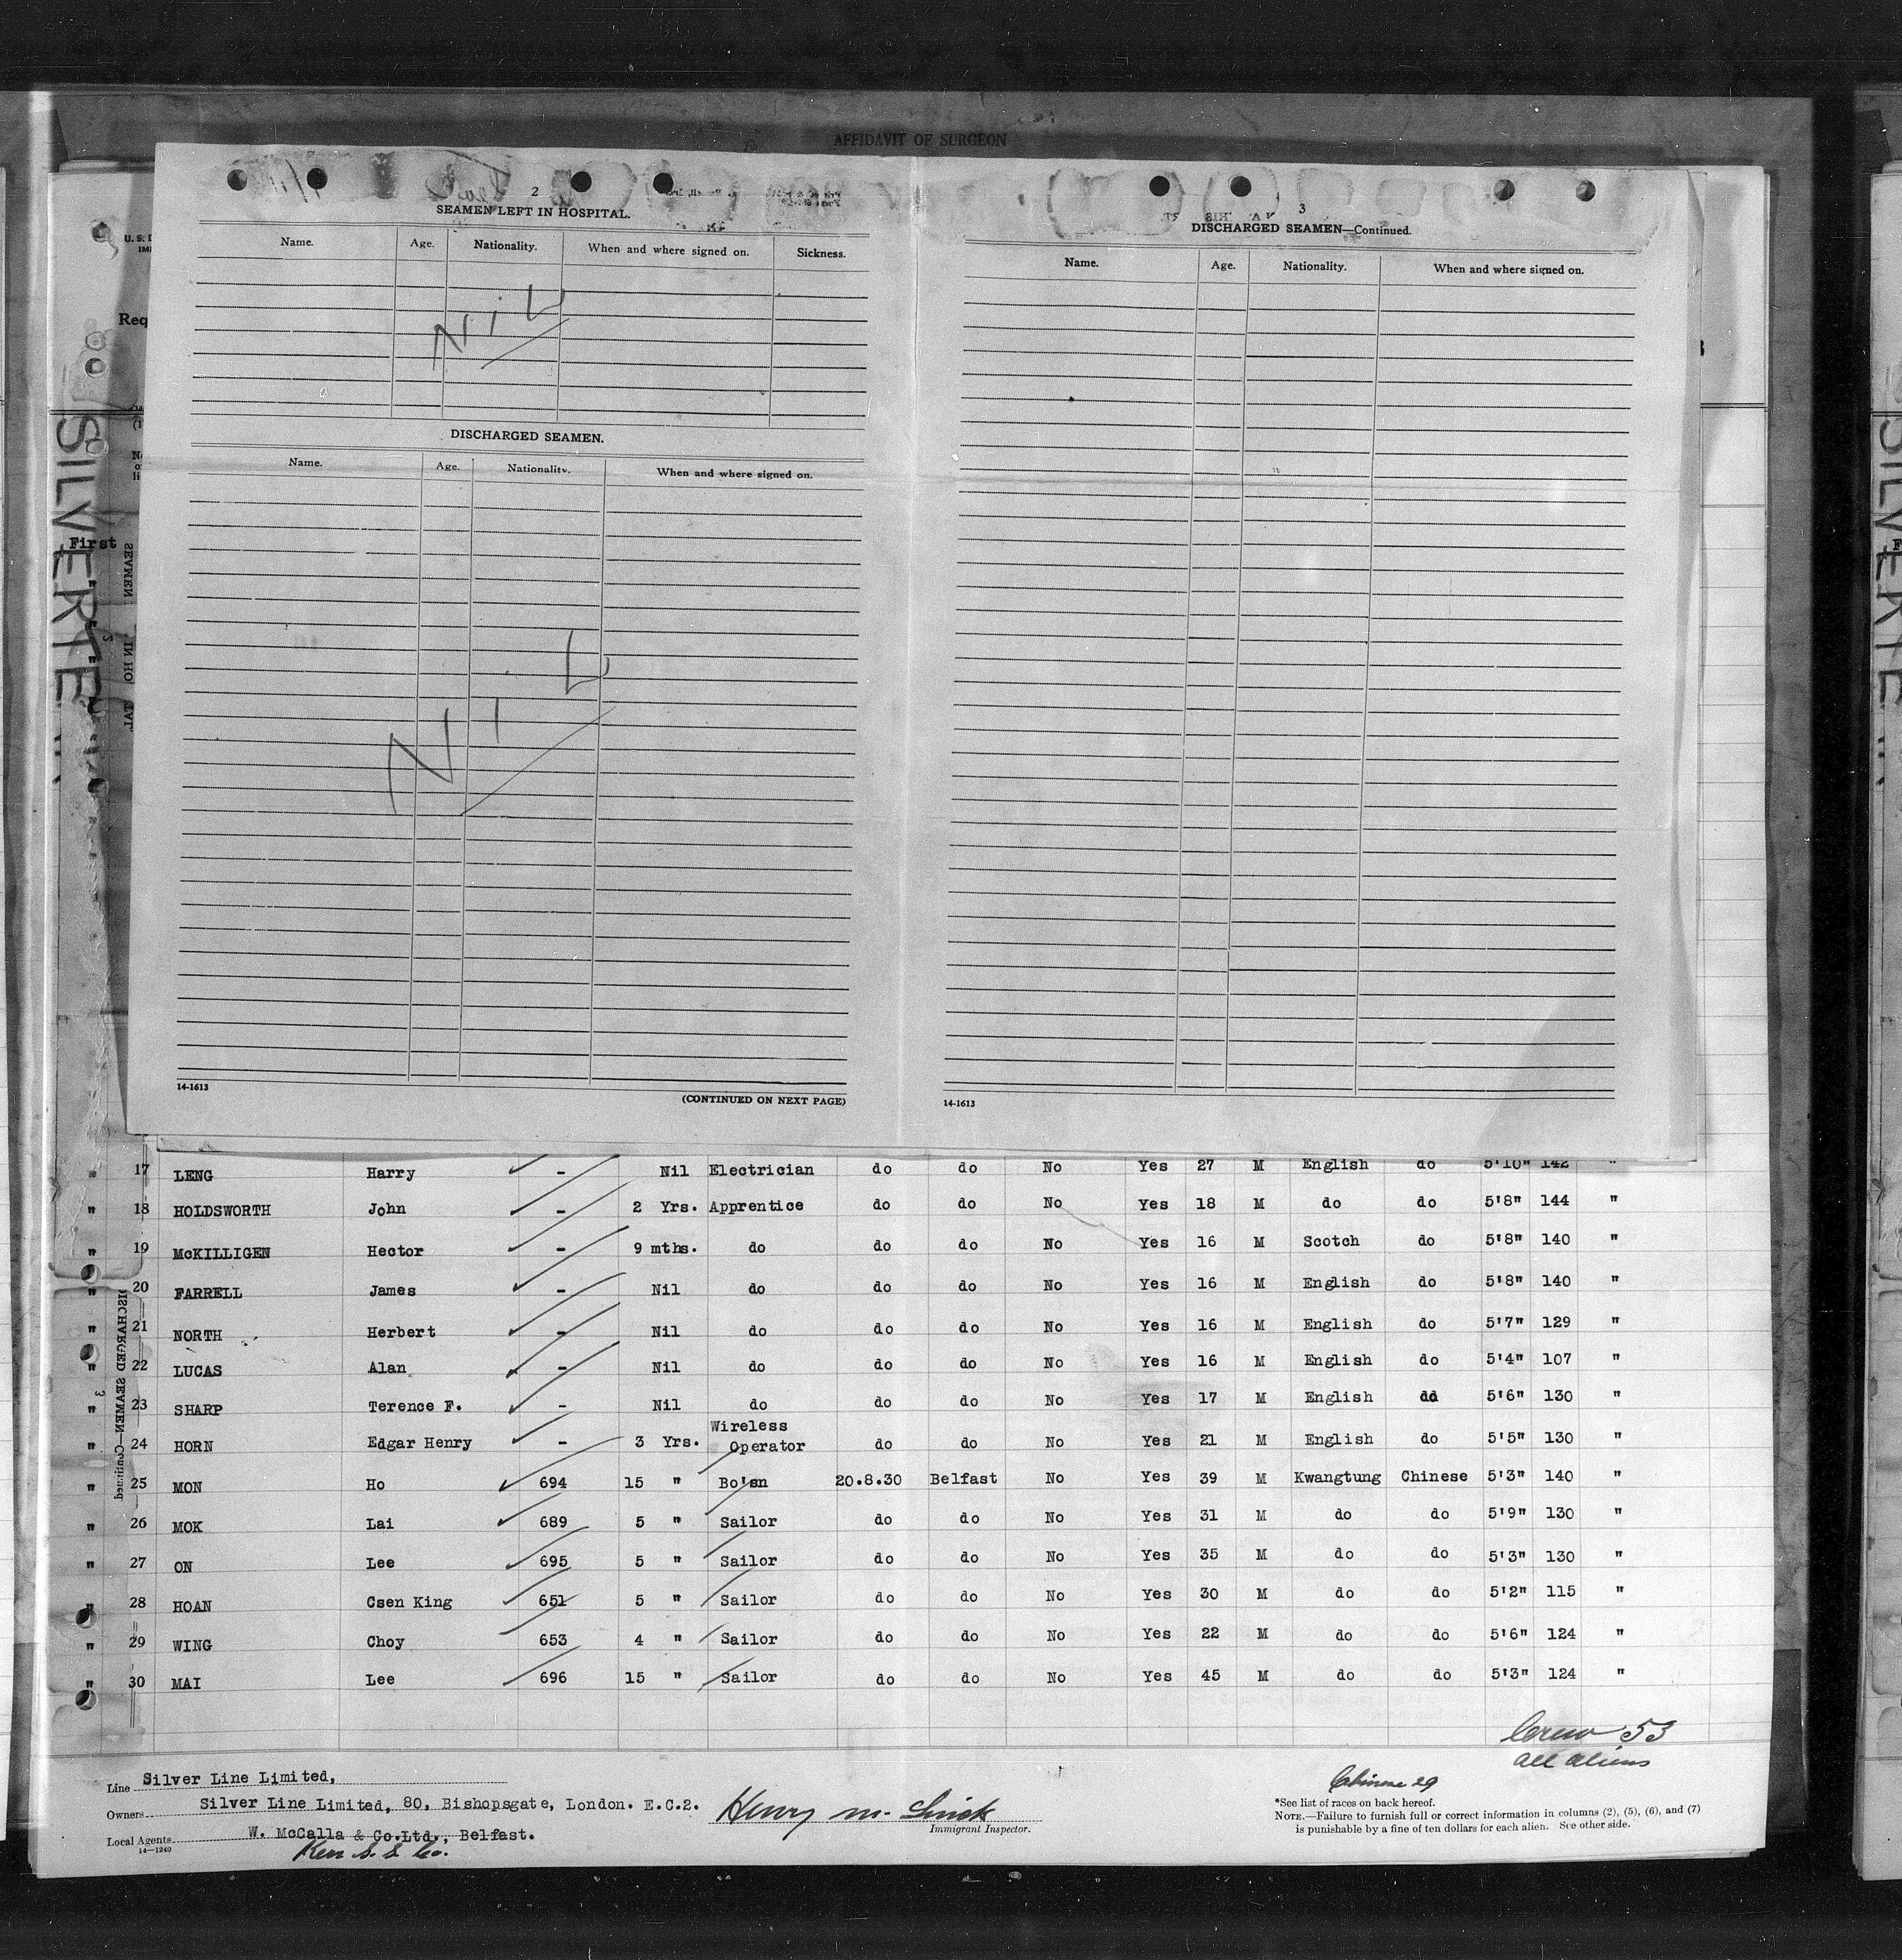 AFFIDAVIT OF SURGEON
2
SEAMEN LEFT IN HOSPITAL.
Name. Age. Nationality. When and where signed on. Sickness.
NiL
DISCHARGED SEAMEN.
Name. Age. Nationality. When and where signed on.
NIL
14-1613
(CONTINUED ON NEXT PAGE)
3
DISCHARGED SEAMEN—Continued.
Name. Age. Nationality. When and where signed on.
14-1613
Req
First
17 LENG Harry - Nil Electrician do do No Yes 27 M English do 5'10" 142 "
" 18 HOLDSWORTH John - 2 Yrs. Apprentice do do No Yes 18 M do do 5'8" 144 "
" 19 McKILLIGEN Hector - 9 mths. do do do No Yes 16 M Scotch do 5'8" 140 "
" 20 FARRELL James - Nil do do do No Yes 16 M English do 5'8" 140 "
" 21 NORTH Herbert - Nil do do do No Yes 16 M English do 5'7" 129 "
" 22 LUCAS Alan - Nil do do do No Yes 16 M English do 5'4" 107 "
" 23 SHARP Terence F. - Nil do do do No Yes 17 M English dd 5'6" 130 "
" 24 HORN Edgar Henry - 3 Yrs. Wireless Operator do do No Yes 21 M English do 5'5" 130 "
" 25 MON Ho 694 15 " Bo'sn 20.8.30 Belfast No Yes 39 M Kwangtung Chinese 5'3" 140 "
" 26 MOK Lai 689 5 " Sailor do do No Yes 31 M do do 5'9" 130 "
" 27 ON Lee 695 5 " Sailor do do No Yes 35 M do do 5'3" 130 "
" 28 HOAN Csen King 651 5 " Sailor do do No Yes 30 M do do 5'2" 115 "
" 29 WING Choy 653 4 " Sailor do do No Yes 22 M do do 5'6" 124 "
" 30 MAI Lee 696 15 " Sailor do do No Yes 45 M do do 5'3" 124 "
Crew 53
all aliens
Chinese 29
Line Silver Line Limited,
Owners Silver Line Limited, 80, Bishopsgate, London. E.C.2.
Local Agents W. McCalla & Co.Ltd., Belfast.
14—1240
Kerr S. S. Co.
Henry M.
Immigrant Inspector.
*See list of races on back hereof.
NOTE.—Failure to furnish full or correct information in columns (2), (5), (6), and (7)
is punishable by a fine of ten dollars for each alien. See other side.